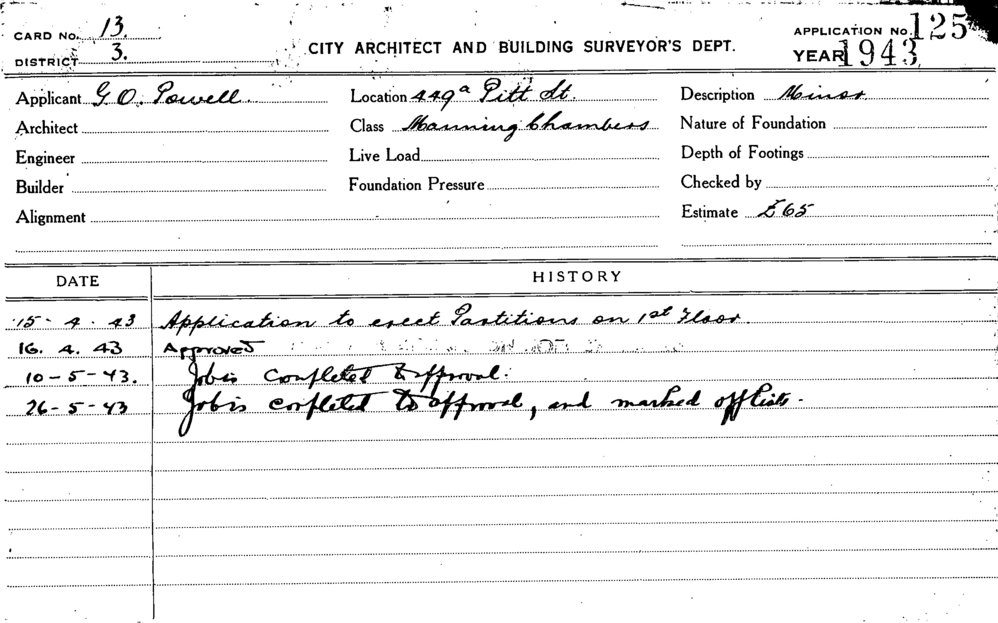 CARD No. 13. CITY ARCHITECT AND BUILDING SURVEYOR'S DEPT. APPLICATION No. 125
DISTRICT 3. YEAR 1943
Applicant G. O. Powell Location 449a Pitt St. Description Minor
Architect Class Manning Chambers Nature of Foundation
Engineer Live Load Depth of Footings
Builder Foundation Pressure Checked by
Alignment Estimate £65
DATE HISTORY
15-4-43 Application to erect Partitions on 1st Floor.
16.4.43 Approved
10-5-43. Job is completed to approval.
26-5-43 Job is completed to approval, and marked off lists.